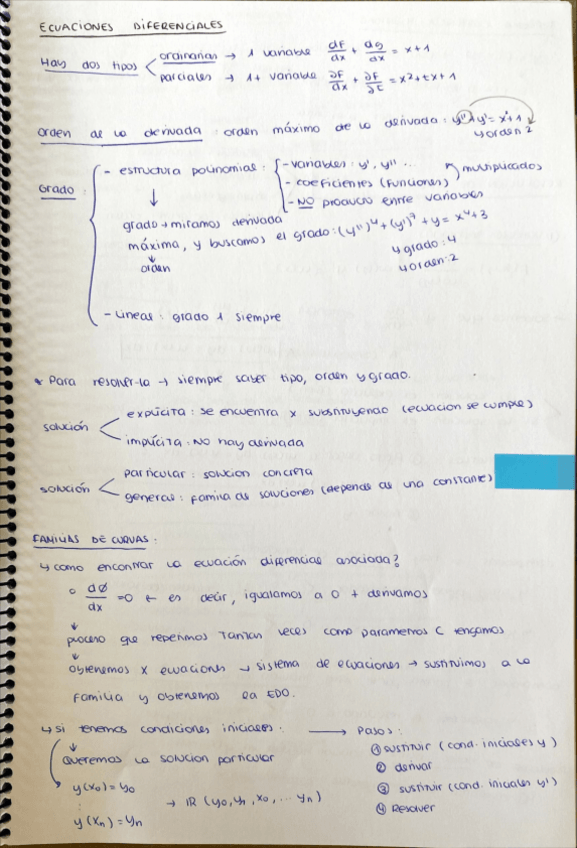 ECUACIONES DIFERENCIALES
Hay dos tipos
ordinarias → 1 variable dF/dx + dg/dx = x+1
parciales → 1+ variable ∂F/∂x + ∂F/∂t = x²+tx+1
orden de la derivada : orden máximo de la derivada : y''+y'= x²+1
↳ orden 2
Grado :
- estructura polinomial :
- variables : y', y'' ...
- coeficientes (funciones)
multiplicados
- NO producto entre variables
↓
grado → miramos derivada
máxima, y buscamos el grado : (y'')⁴ + (y')⁷ + y = x⁴+3
↓
orden
↳ grado : 4
↳ orden : 2
- Lineal : grado 1 siempre
* Para resolver-la → siempre saber tipo, orden y grado.
solución
explícita : se encuentra x substituyendo (ecuacion se cumple)
implícita : NO hay derivada
solución
particular : solucion concreta
general : familia de soluciones (depende de una constante)
FAMILIAS DE CURVAS :
↳ como encontrar la ecuación diferencial asociada?
○ dØ/dx = 0 ← es decir, igualamos a 0 + derivamos
↓
proceso que repetimos tantas veces como parametros C tengamos
↓
obtenemos x ecuaciones → sistema de ecuaciones → sustituimos a la
familia y obtenemos la EDO.
↳ si tenemos condiciones iniciales : → Pasos :
↓
queremos la solucion particular
y(x₀) = y₀
:
y(xₙ) = yₙ
→ IR (y₀, y₁, x₀, ... yₙ)
① sustituir (cond. iniciales y)
② derivar
③ sustituir (cond. iniciales y')
④ Resolver